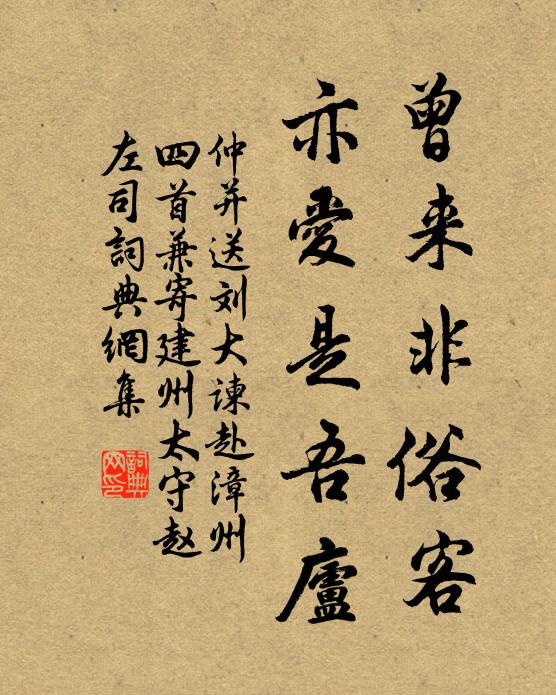 曾来非俗客
亦愛是吾廬
仲并送刘大諫赴漳州
四首兼寄建州太守赵
左司詞典網集
詞典
网印